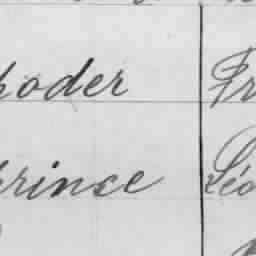 hoder Fr
prince Léo